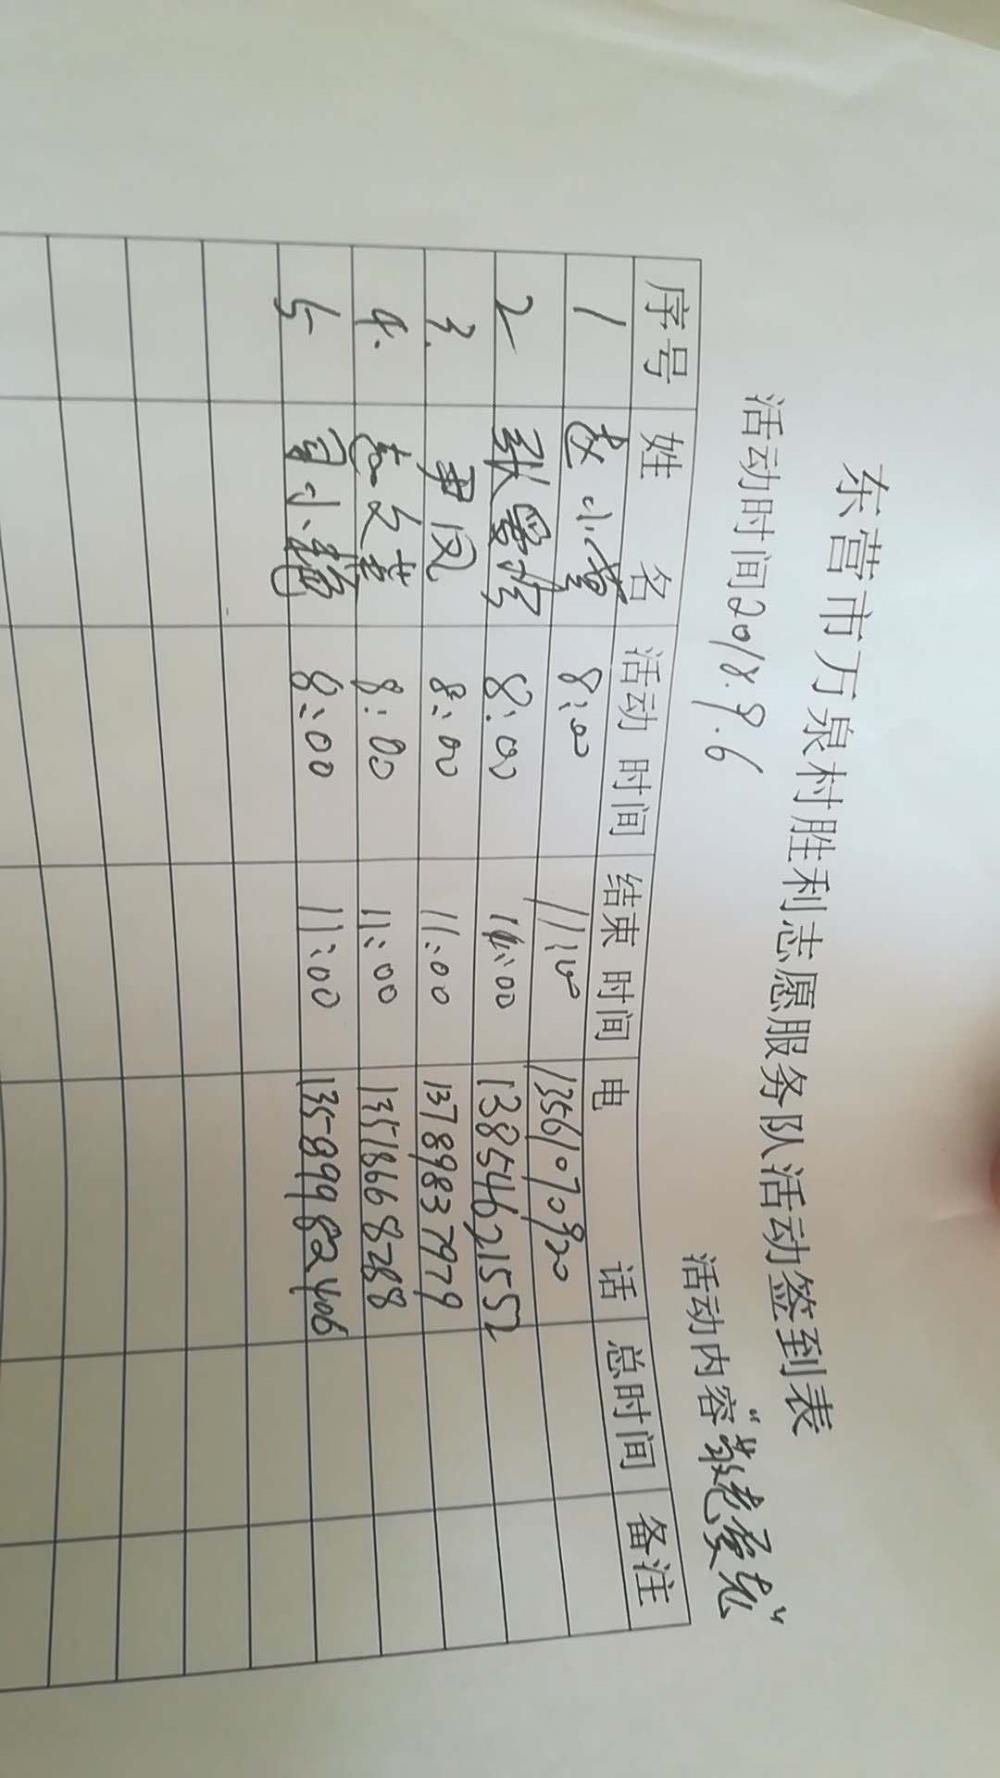 东营市万泉村胜利志愿服务队活动签到表
活动时间2018.9.6 活动内容“敬老爱老”
序号 姓名 活动时间 结束时间 电话 总时间 备注
1 赵小 8:00 11:00 13561070920
2 张 8:00 11:00 13854621552
3. 尹凤 8:00 11:00 13789837979
4. 8:00 11:00 13518668288
5 司小艳 8:00 11:00 13589982406